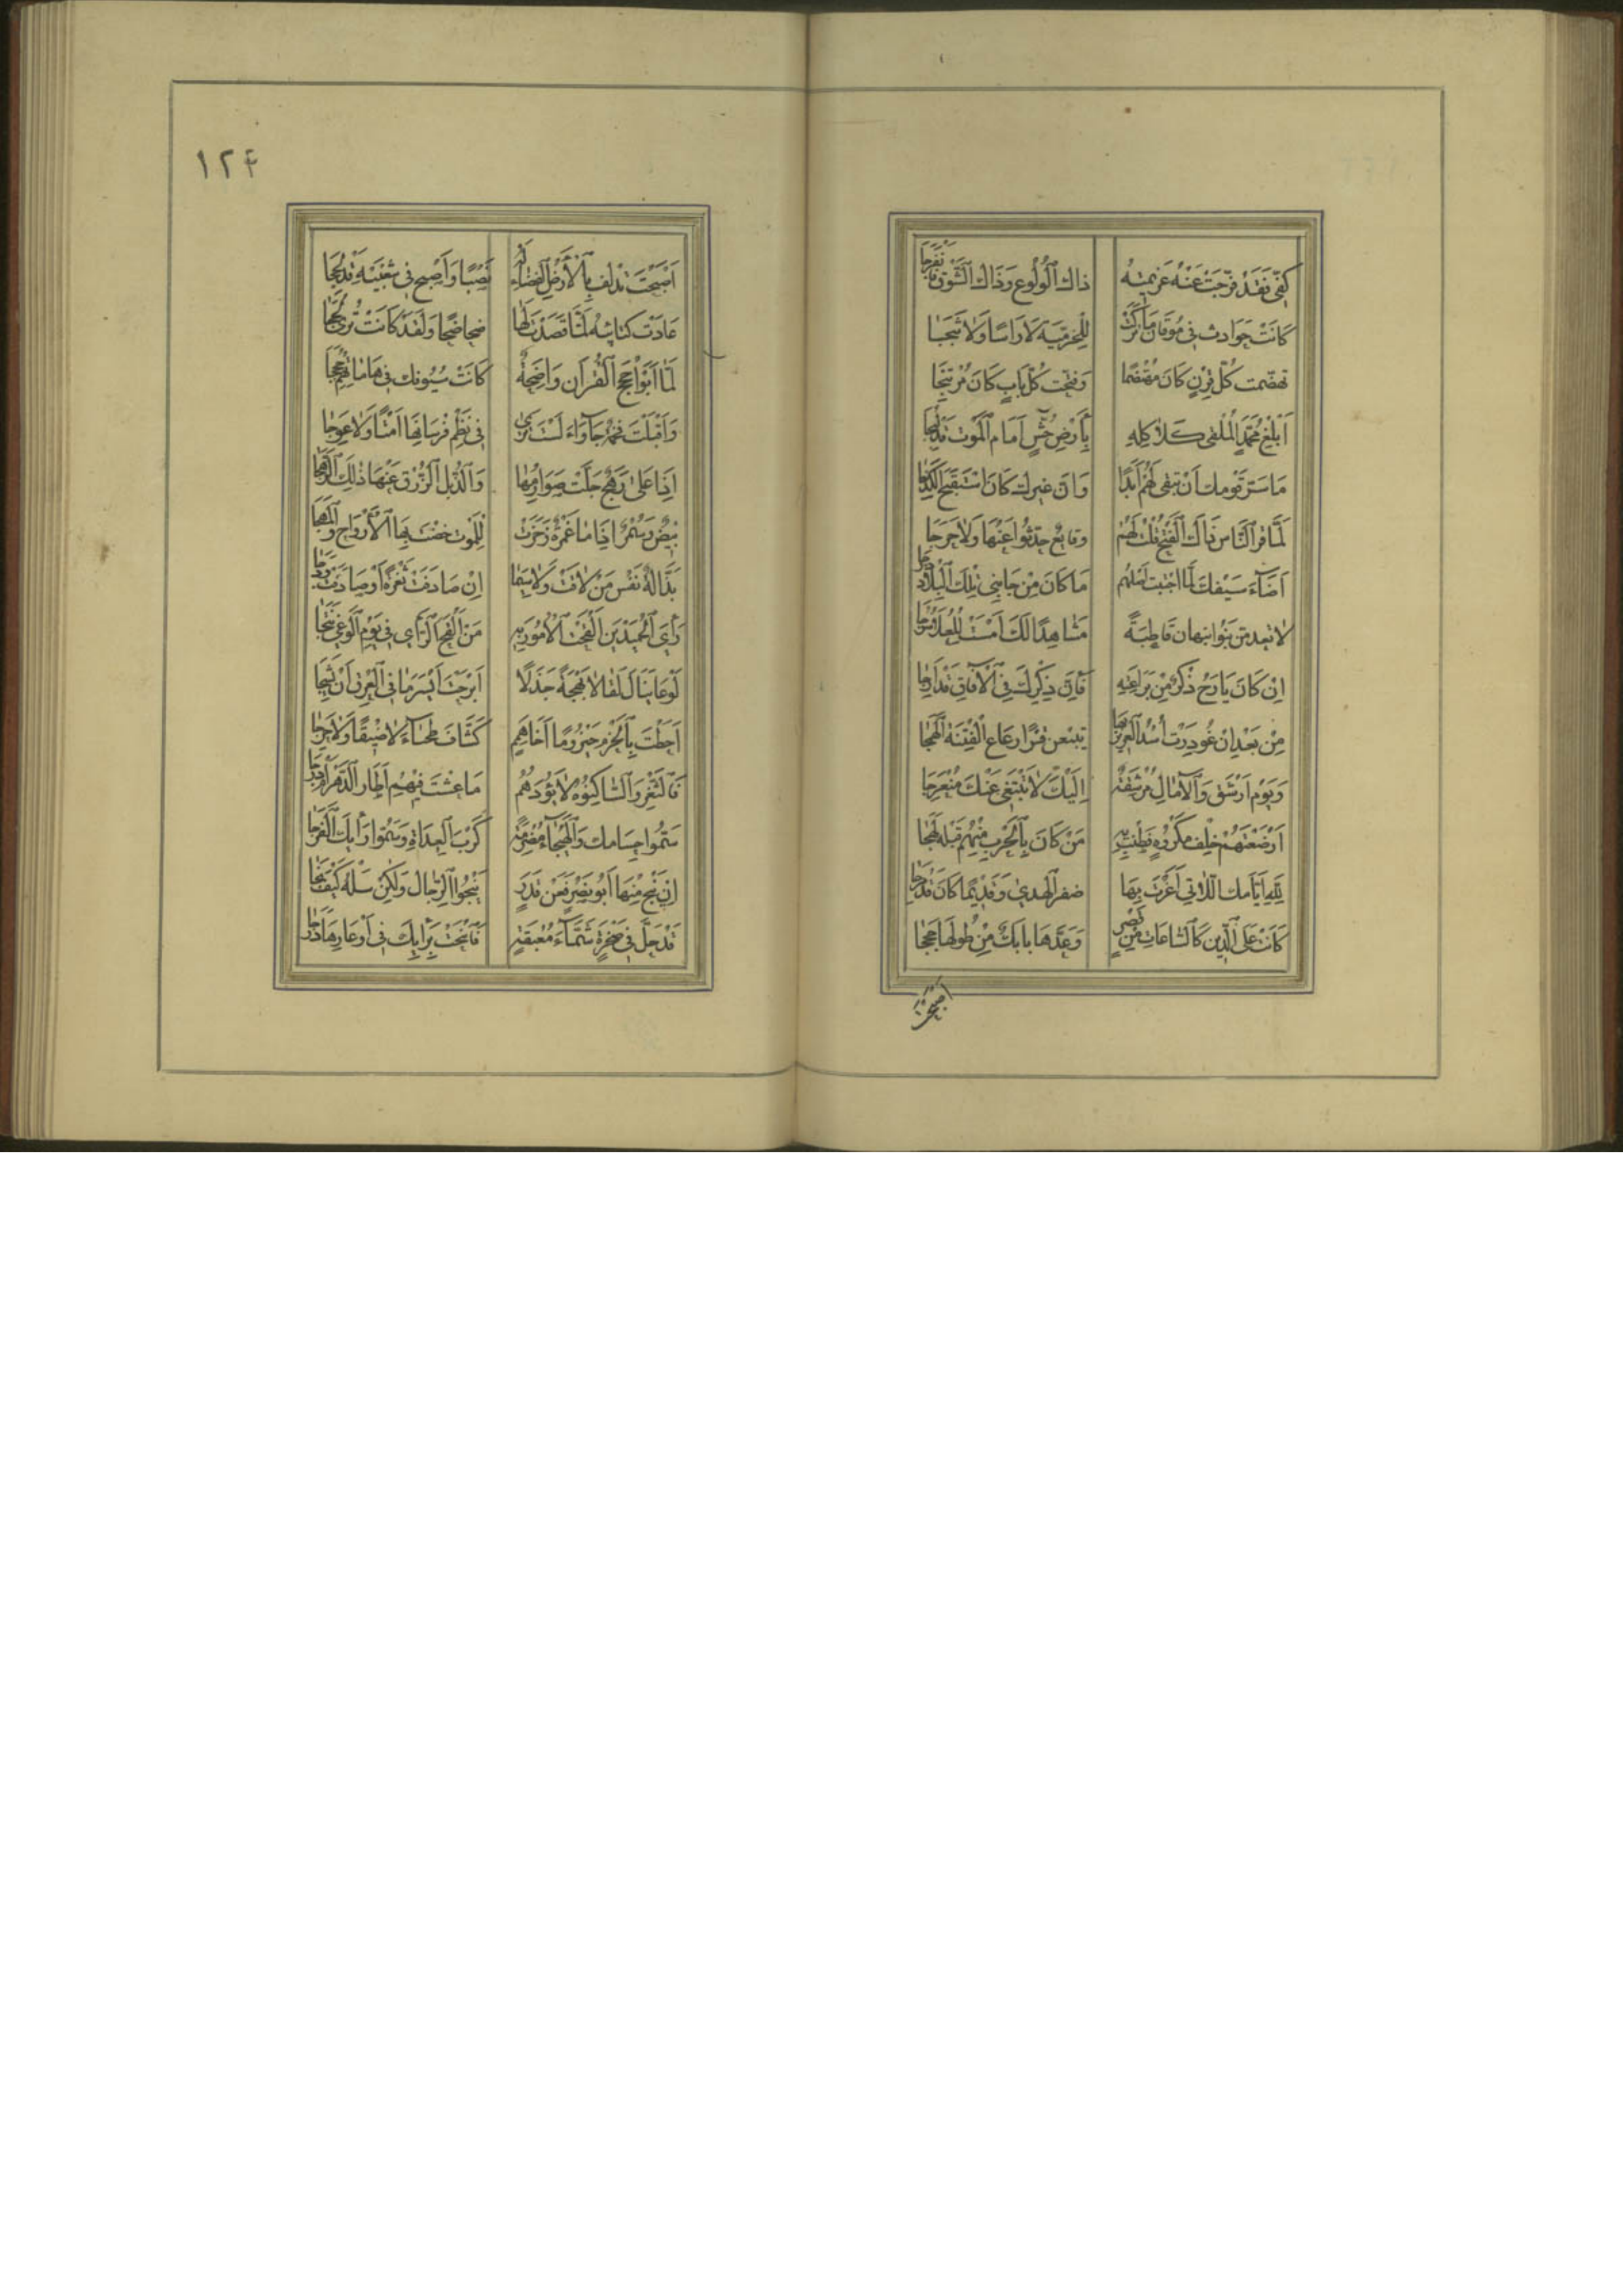 كُفِّى فَقَدْ فَرَّجَتْ عَنْهُ عَزِيمَتُهُ ذاكَ ٱلْوُلُوعَ وَذَاكَ ٱلشَّوْقَ فَٱنْفَرَجَا
كَانَتْ حَوَادِث فِى مُوقَانَ مَا تَرَكَتْ لِلْخُرَّمِيَّةِ لَا رَاسًا وَلَا ثَبَجَا
تهضّمت كُلَّ قَرْنٍ كَانَ مُهْتَضِمًا وَفَتحَت كُلّ بَابٍ كَانَ مُرْتَتِجَا
اَبْلِغْ مُحَمَّدٍ ٱلْمُلْقِى كَلَاكِلِهِ بِأَرْضِ خُشٍّ اَمَامَ ٱلْمَوْت قَدْ لُبِجَا
مَا سَرَّ قَوْمَكَ أَنْ تَبْقَى لَهُمْ أَبَدًا وَاَنَّ غيرك كَانَ ٱسْتَفْتَحَ ٱلْكَذَجَا
لَمَّا قَرَا ٱلنَّاسُ ذَاكَ ٱلْفَتْحَ قُلْتُ لَهُمْ وقايعٌ حَدِّثُوا عَنْهَا وَلَا حَرَجَا
اَضَآءَ سَيْفُكَ لَمَّا اجْتُثَّ أَصْلُهُم مَا كَانَ مِنْ جَانِبَى تِلْكَ ٱلْبِلَادِ دَجَا
لَا تبعدمّن بَنُوا نبهان قَاطِبَةً مَشَاهِدًا لَكَ اَمْسَتْ لِلْعُلَا سُرُجَا
اِنْ كَانَ يَأرَج ذِكْرٌ مِنْ بَرَاعَتِهِ فَاِنَّ ذِكْرَكَ فِى ٱلْآفَاقِ قَدْ أَرِجَا
مِنْ بَعْدِ اِنْ غُودِرَتْ أُسْدُ ٱلْعَرِين بِهَا يَتبعن قَسْرًا رعَاع ٱلْفِتْنَةِ ٱلْهَمَجَا
وَيَوْم اَرْشَقَ وَٱلْآمَالُ مُرْشِقَةٌ اِلَيْكَ لَا تَبْتَغِى عَنْكَ مُنْعَرَجَا
اَرْضَعْتَهُمْ خِلْفَ مَكْرُوهٍ فَطَمْتَ بِهِ مَنْ كَانَ بِٱلْحَرْبِ مِنْهُمْ قَبْلَهُ لَهِجَا
لِلَّهِ اَيَّامكَ ٱللَّاتِى اَغَرْتَ بِهَا ضفر ٱلْهُدَى وَقَدِيمًا كَانَ قَدْ مَرِجَا
كَانَت عَلَى ٱلدِّينِ كَٱلسَّاعَاتِ مِنْ قِصَرٍ وَعَدَّهَا بَابَكٌ مِنْ طُولِهَا حِجَجَا
اصبحت
١٢٤
اَصْبَحْتَ تدْلِف بِٱلْأَرْضِ ٱلْفَضَاءِ لَهُ نَصْبًا وَاَصْبَحَ فِى شُعْبَيْهِ قَدْ لَحِجَا
عَادَتْ كتائبهُ لَمَّا قَصَدْتَ لَهَا ضَحَاضِحًا وَلَقَدْ كَانَتْ تُرَى لُجَجَا
لَمَّا اَبَوْا حُجَجَ ٱلْقُرْآنِ وَاضِحَةً كَانَتْ سُيُوفُكَ فِى هَامَاتِهِمْ حُجَجَا
وَاَقْبَلَتْ فَحْمَةٌ جَآوَاءُ لَسْتَ تَرَى فِى نَظْمِ فُرْسَانِهَا اَمْتًا وَلَا عِوَجَا
اِذَا عَلَى رَهَجٌ جَلَّتْ صَوَارِمُهَا وَٱلذُّبَّلُ ٱلزُّرْقُ عَنْهَا ذٰلِكَ ٱلرَّهَجَا
بِيضٌ وَسُمْرٌ اِذَا مَا غَمْرَةٌ زَخَرَتْ لِلْمَوْتِ خضتَ بِهَا ٱلْأَرْوَاحَ وَٱلْمُهَجَا
نَزَّالَةٌ نَفْسَ مَنْ لَاقَتْ وَلَا سِيَمَا اِنْ صَادَفَتْ ثُغْرَةً اَوْ صَادَفَتْ وَدَجَا
رَأْىَ ٱلْحُمَيْدَيْنِ اَلْقَحْتَ ٱلْأُمُورَ بِهِ مَنْ اَلْقَحَ ٱلرَّاىَ فِى يَوْمِ ٱلْوَغَى نَتَجَا
لَوْ عَايَنَاكَ لَقَالَا بَهْجَةً جَذَلًا اَبْرَحْتَ اَيْسَرُ مَا فِى ٱلْعِرْقِ اَنْ يَشِجَا
اَحَطْتَ بِٱلْحَزْمِ حَيْزُومًا اَخَا هِمَمٍ كَشَّافَ طَخْيَآءَ لَا ضَيْقًا وَلَا حَرِجَا
فَٱلثَّغْرُ وَٱلسَّاكِنُوهُ لَا يَؤُودُهُمْ مَا عِشْتَ فِيهِمْ اَطَارَ ٱلدَّهْرُ أَمْ دَرَجَا
سَمُّوا حُسَامكَ وَٱلْهَيْجَآءُ مُضْرَمَةٌ كَرْبَ ٱلْعُدَاةِ وَسَمُّوا رَأْيَكَ ٱلْفَرَجَا
اِنْ يَنْجُ مِنْهَا اَبُو نَصْرٍ فَعَنْ قَدَرٍ يَنْجُوا ٱلرِّجَالُ وَلٰكِنْ سَلْهُ كَيْفَ نَجَا
قَدْ حَلَّ فِى صَخْرَةٍ شَمَّآءَ مُعْنِقَةٍ فَٱنْحَتْ بِرَأْيِكَ فِى أَوْعَارِهَا دَرَجَا